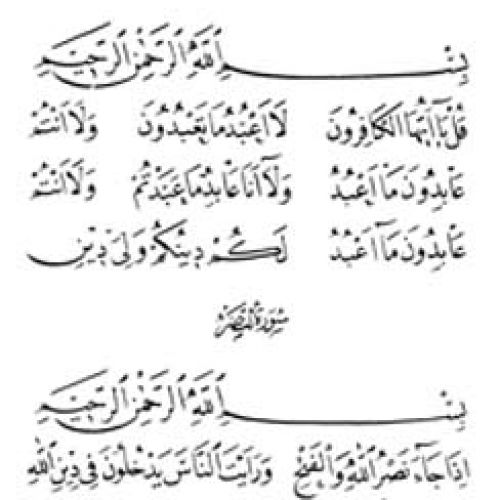 بِسْمِ اللهِ الرَّحْمٰنِ الرَّحِيمِ
قُلْ يَا أَيُّهَا الْكَافِرُونَ لَا أَعْبُدُ مَا تَعْبُدُونَ وَلَا أَنْتُمْ
عَابِدُونَ مَا أَعْبُدُ وَلَا أَنَا عَابِدٌ مَا عَبَدْتُمْ وَلَا أَنْتُمْ
عَابِدُونَ مَا أَعْبُدُ لَكُمْ دِينُكُمْ وَلِيَ دِينِ
سُورَةُ النَّصْرِ
بِسْمِ اللهِ الرَّحْمٰنِ الرَّحِيمِ
اِذَا جَاءَ نَصْرُ اللهِ وَالْفَتْحُ وَرَأَيْتَ النَّاسَ يَدْخُلُونَ فِي دِينِ اللهِ